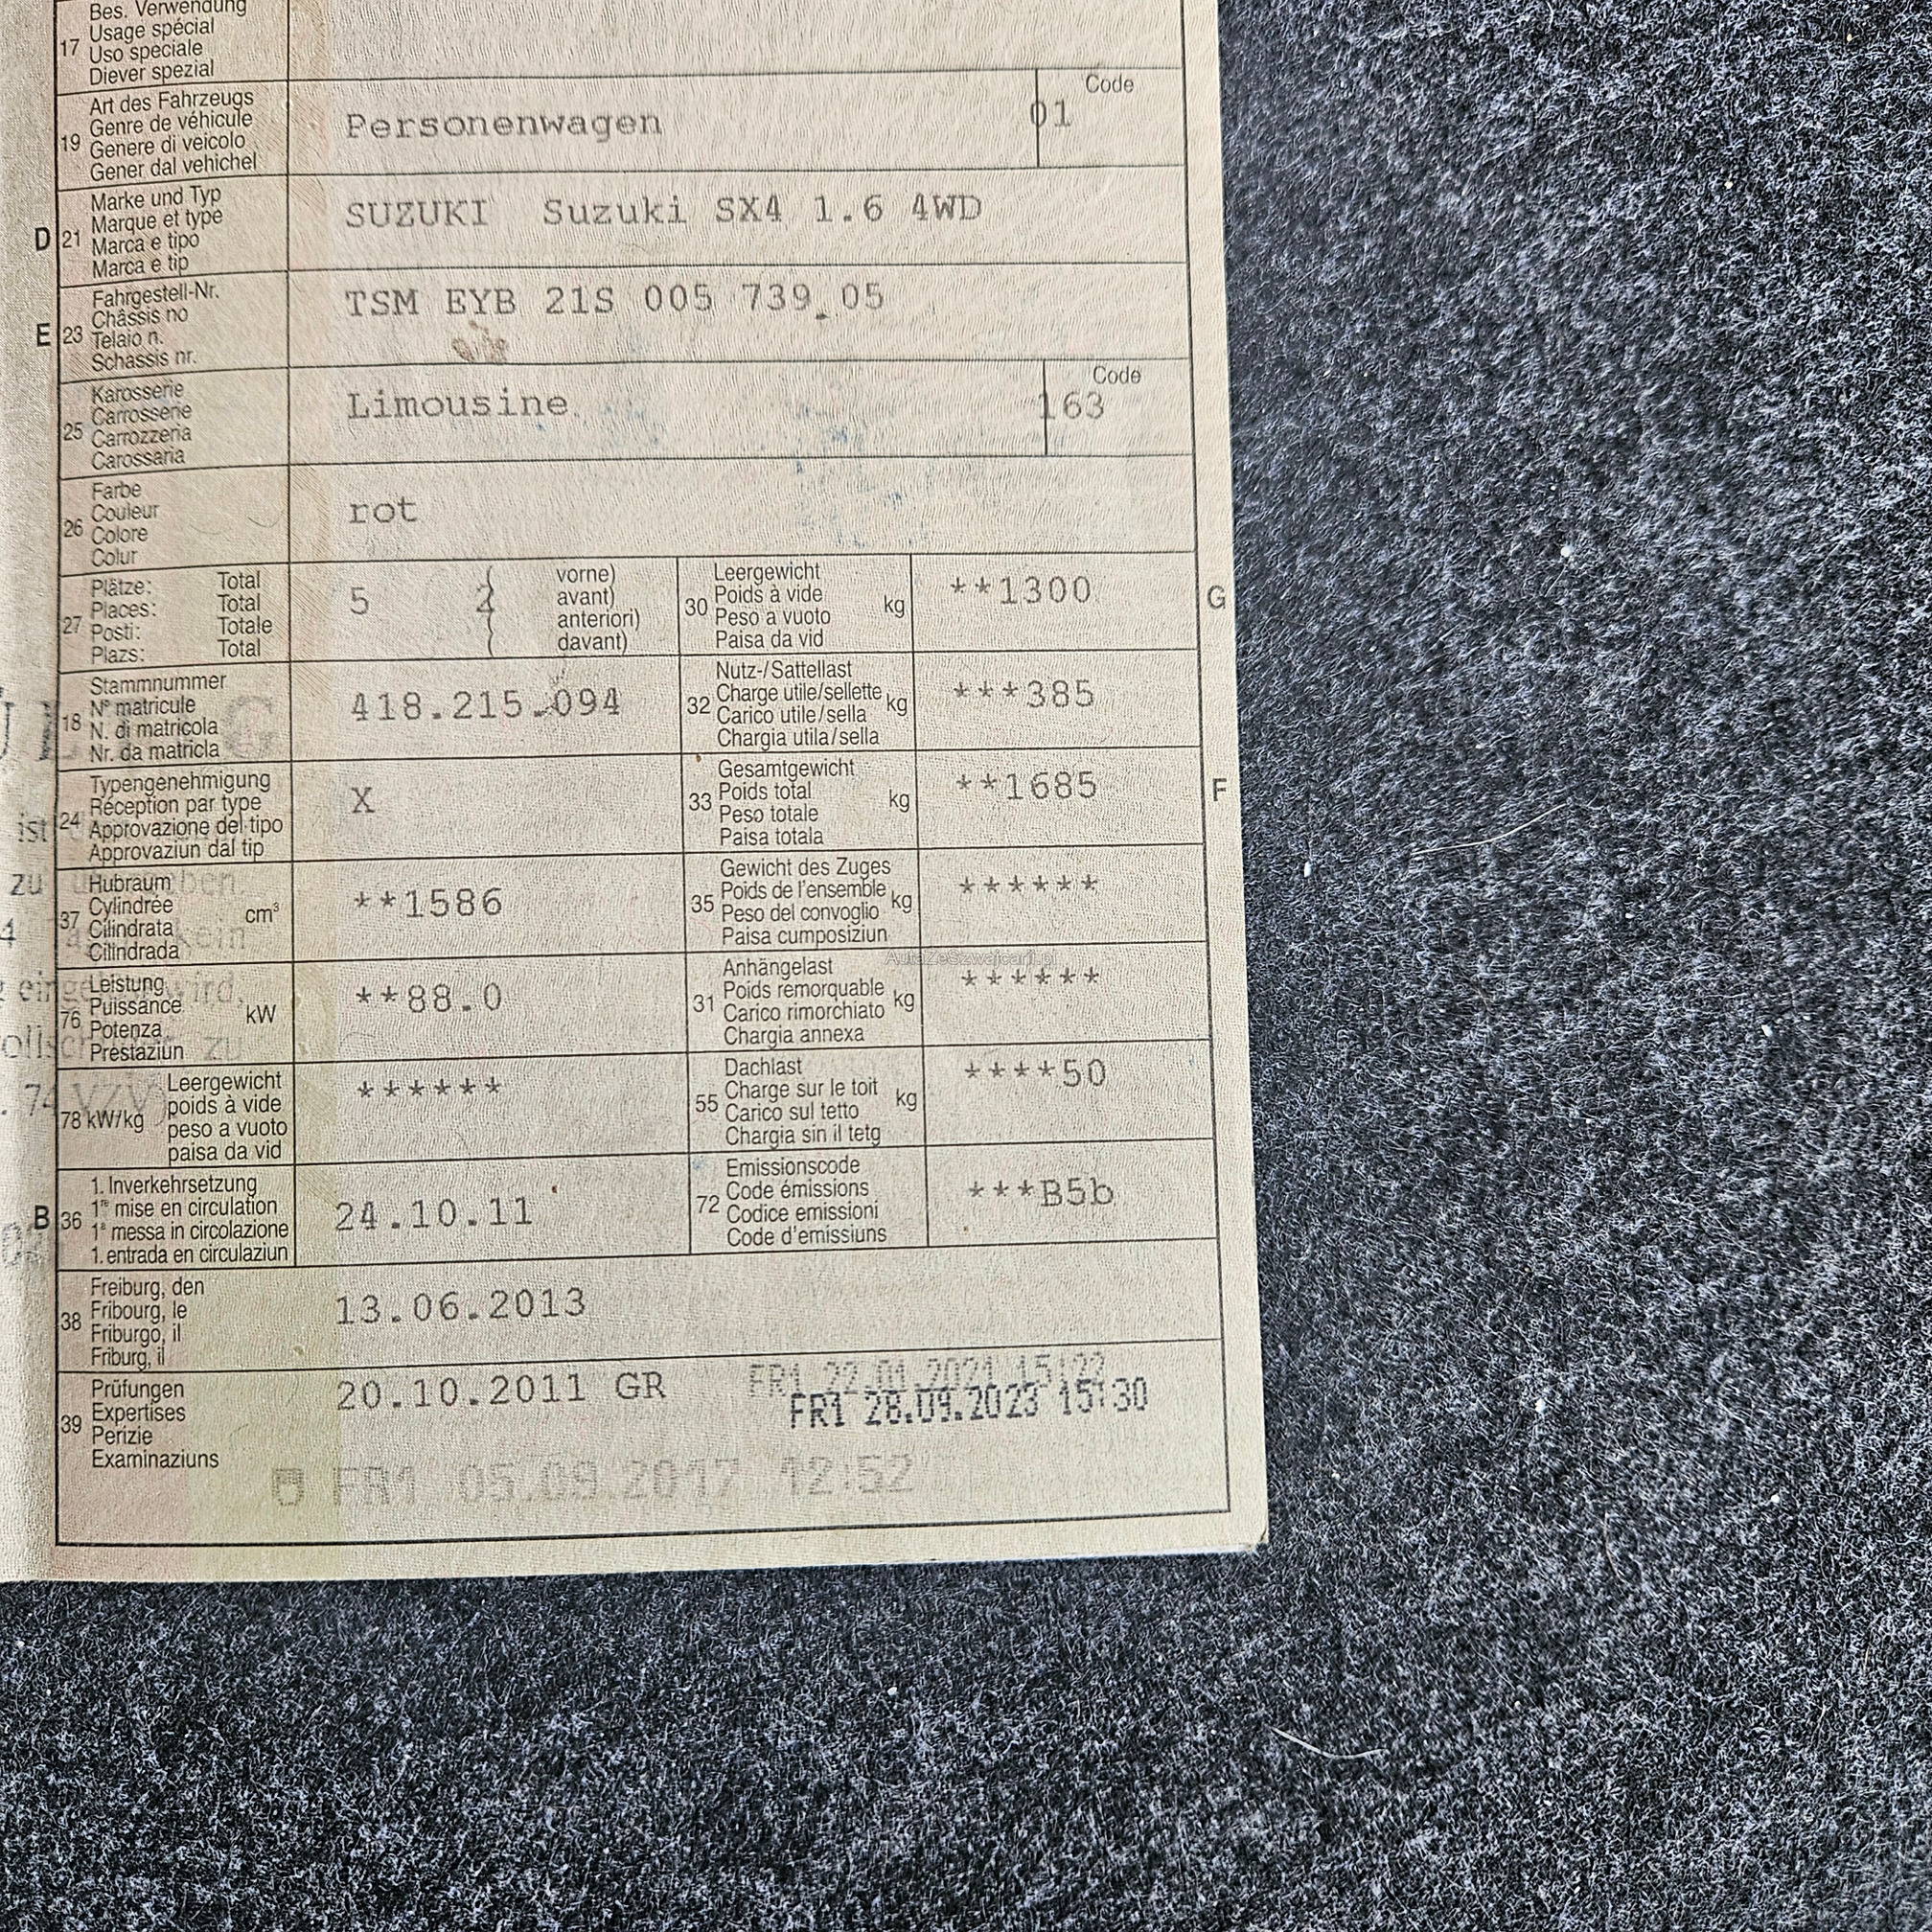 Bes. Verwendung
17 Usage spécial
Uso speciale
Diever spezial
Art des Fahrzeugs
19 Genre de véhicule
Genere di veicolo
Gener dal vehichel
Personenwagen
Code
01
Marke und Typ
D 21 Marque et type
Marca e tipo
Marca e tip
SUZUKI Suzuki SX4 1.6 4WD
Fahrgestell-Nr.
E 23 Châssis no
Telaio n.
Schassis nr.
TSM EYB 21S 005 739 05
Karosserie
25 Carrosserie
Carrozzeria
Carossaria
Limousine
Code
163
Farbe
26 Couleur
Colore
Colur
rot
Plätze: Total
27 Places: Total
Posti: Totale
Plazs: Total
5 2
vorne)
avant)
anteriori)
davant)
Leergewicht
30 Poids à vide kg
Peso a vuoto
Paisa da vid
**1300
G
Stammnummer
18 N° matricule
N. di matricola
Nr. da matricla
418.215.094
Nutz-/Sattellast
32 Charge utile/sellette kg
Carico utile/sella
Chargia utila/sella
***385
Typengenehmigung
24 Réception par type
Approvazione del tipo
Approvaziun dal tip
X
Gesamtgewicht
33 Poids total kg
Peso totale
Paisa totala
**1685
F
Hubraum
37 Cylindrée cm³
Cilindrata
Cilindrada
**1586
Gewicht des Zuges
35 Poids de l'ensemble kg
Peso del convoglio
Paisa cumposiziun
******
Leistung
76 Puissance kW
Potenza
Prestaziun
**88.0
Anhängelast
31 Poids remorquable kg
Carico rimorchiato
Chargia annexa
******
AutaZeSzwajcarii.pl
78 kW/kg
Leergewicht
poids à vide
peso a vuoto
paisa da vid
******
Dachlast
55 Charge sur le toit kg
Carico sul tetto
Chargia sin il tetg
****50
1. Inverkehrsetzung
B 36 1re mise en circulation
1a messa in circolazione
1. entrada en circulaziun
24.10.11
Emissionscode
72 Code émissions
Codice emissioni
Code d'emissiuns
***B5b
Freiburg, den
38 Fribourg, le
Friburgo, il
Friburg, il
13.06.2013
Prüfungen
39 Expertises
Perizie
Examinaziuns
20.10.2011 GR
FR1 22.01.2021 15:22
FR1 28.09.2023 15:30
FR1 05.09.2017 12:52